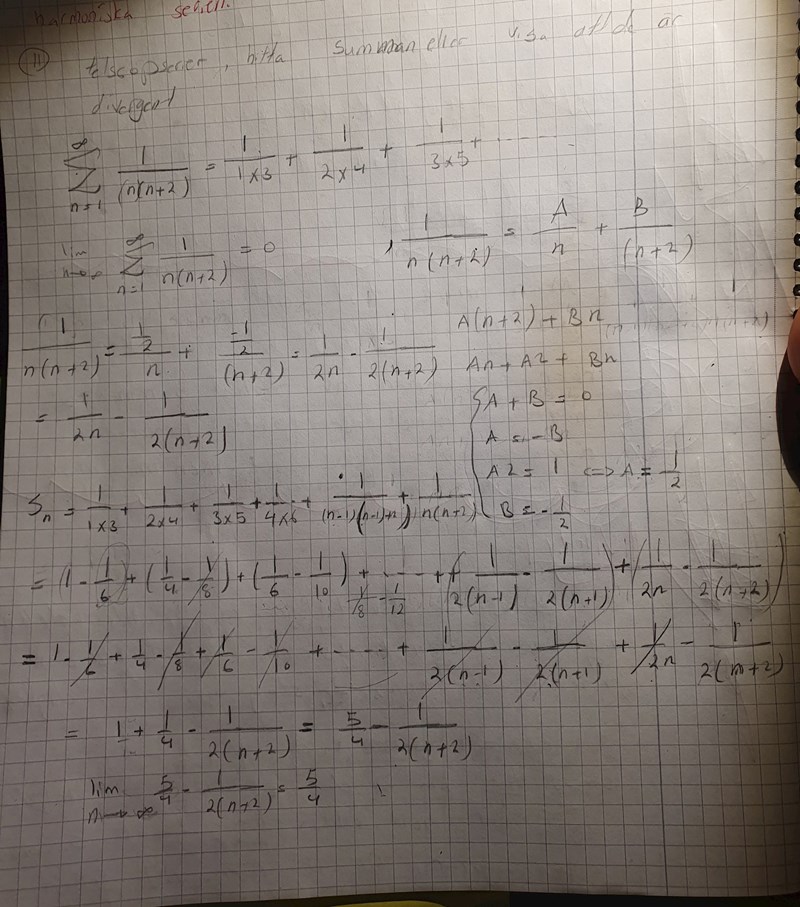 harmoniska serien.
11) telscopserier, hitta summan eller visa att de är
divergent
∞ Σ n=1 1/(n(n+2) = 1/1x3 + 1/2x4 + 1/3x5 + ......
lim n→∞ ∞ Σ n=1 1/n(n+2) = 0 , 1/n(n+2) = A/n + B/(n+2)
A(n+2) + Bn
1/n(n+2) = 1/2/n + -1/2/(n+2) = 1/2n - 1/2(n+2) An + A2 + Bn
= 1/2n - 1/2(n+2) { A + B = 0
A = -B
A2 = 1 <=> A = 1/2
B = -1/2
Sn = 1/1x3 + 1/2x4 + 1/3x5 + 1/4x6 + 1/(n-1)(n-1)+2) + 1/n(n+2)
= (1 - 1/6) + (1/4 - 1/8) + (1/6 - 1/10) + 1/8 - 1/12 ... + (1/2(n-1) - 1/2(n+1)) + (1/2n - 1/2(n+2))
= 1 - 1/6 + 1/4 - 1/8 + 1/6 - 1/10 + ..... + 1/2(n-1) - 1/2(n+1) + 1/2n - 1/2(n+2)
= 1 + 1/4 - 1/2(n+2) = 5/4 - 1/2(n+2)
lim n→∞ 5/4 - 1/2(n+2) = 5/4